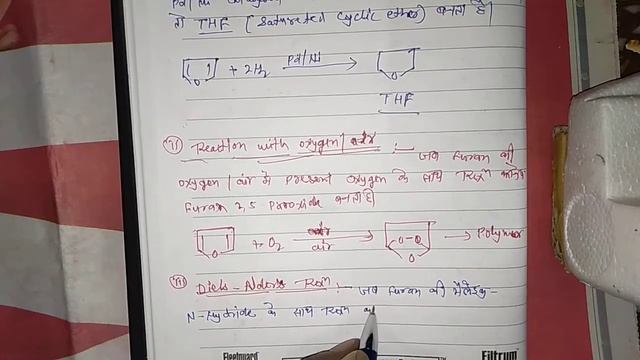 Pd/Ni
तो THF (Saturated cyclic ether) बनता है।
+ 2H₂ Pd/Ni
O O
THF
Reaction with oxygen/ :- जब furan की
oxygen/air में present oxygen के साथ
Furan 2,5 Peroxide बनाता है।
+ O₂ air → Polymer
O O-O O
Diels-Alders :- जब Furan की मैलेइक-
N-hydride के साथ
Fleetguard Filtrum